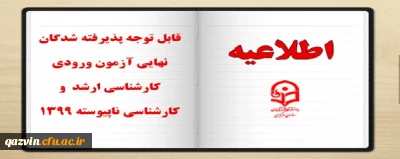 اطلاعیه
قابل توجه پذیرفته شدگان
نهایی آزمون ورودی
کارشناسی ارشد و
کارشناسی ناپیوسته ۱۳۹۹
qazvin.cfu.ac.ir